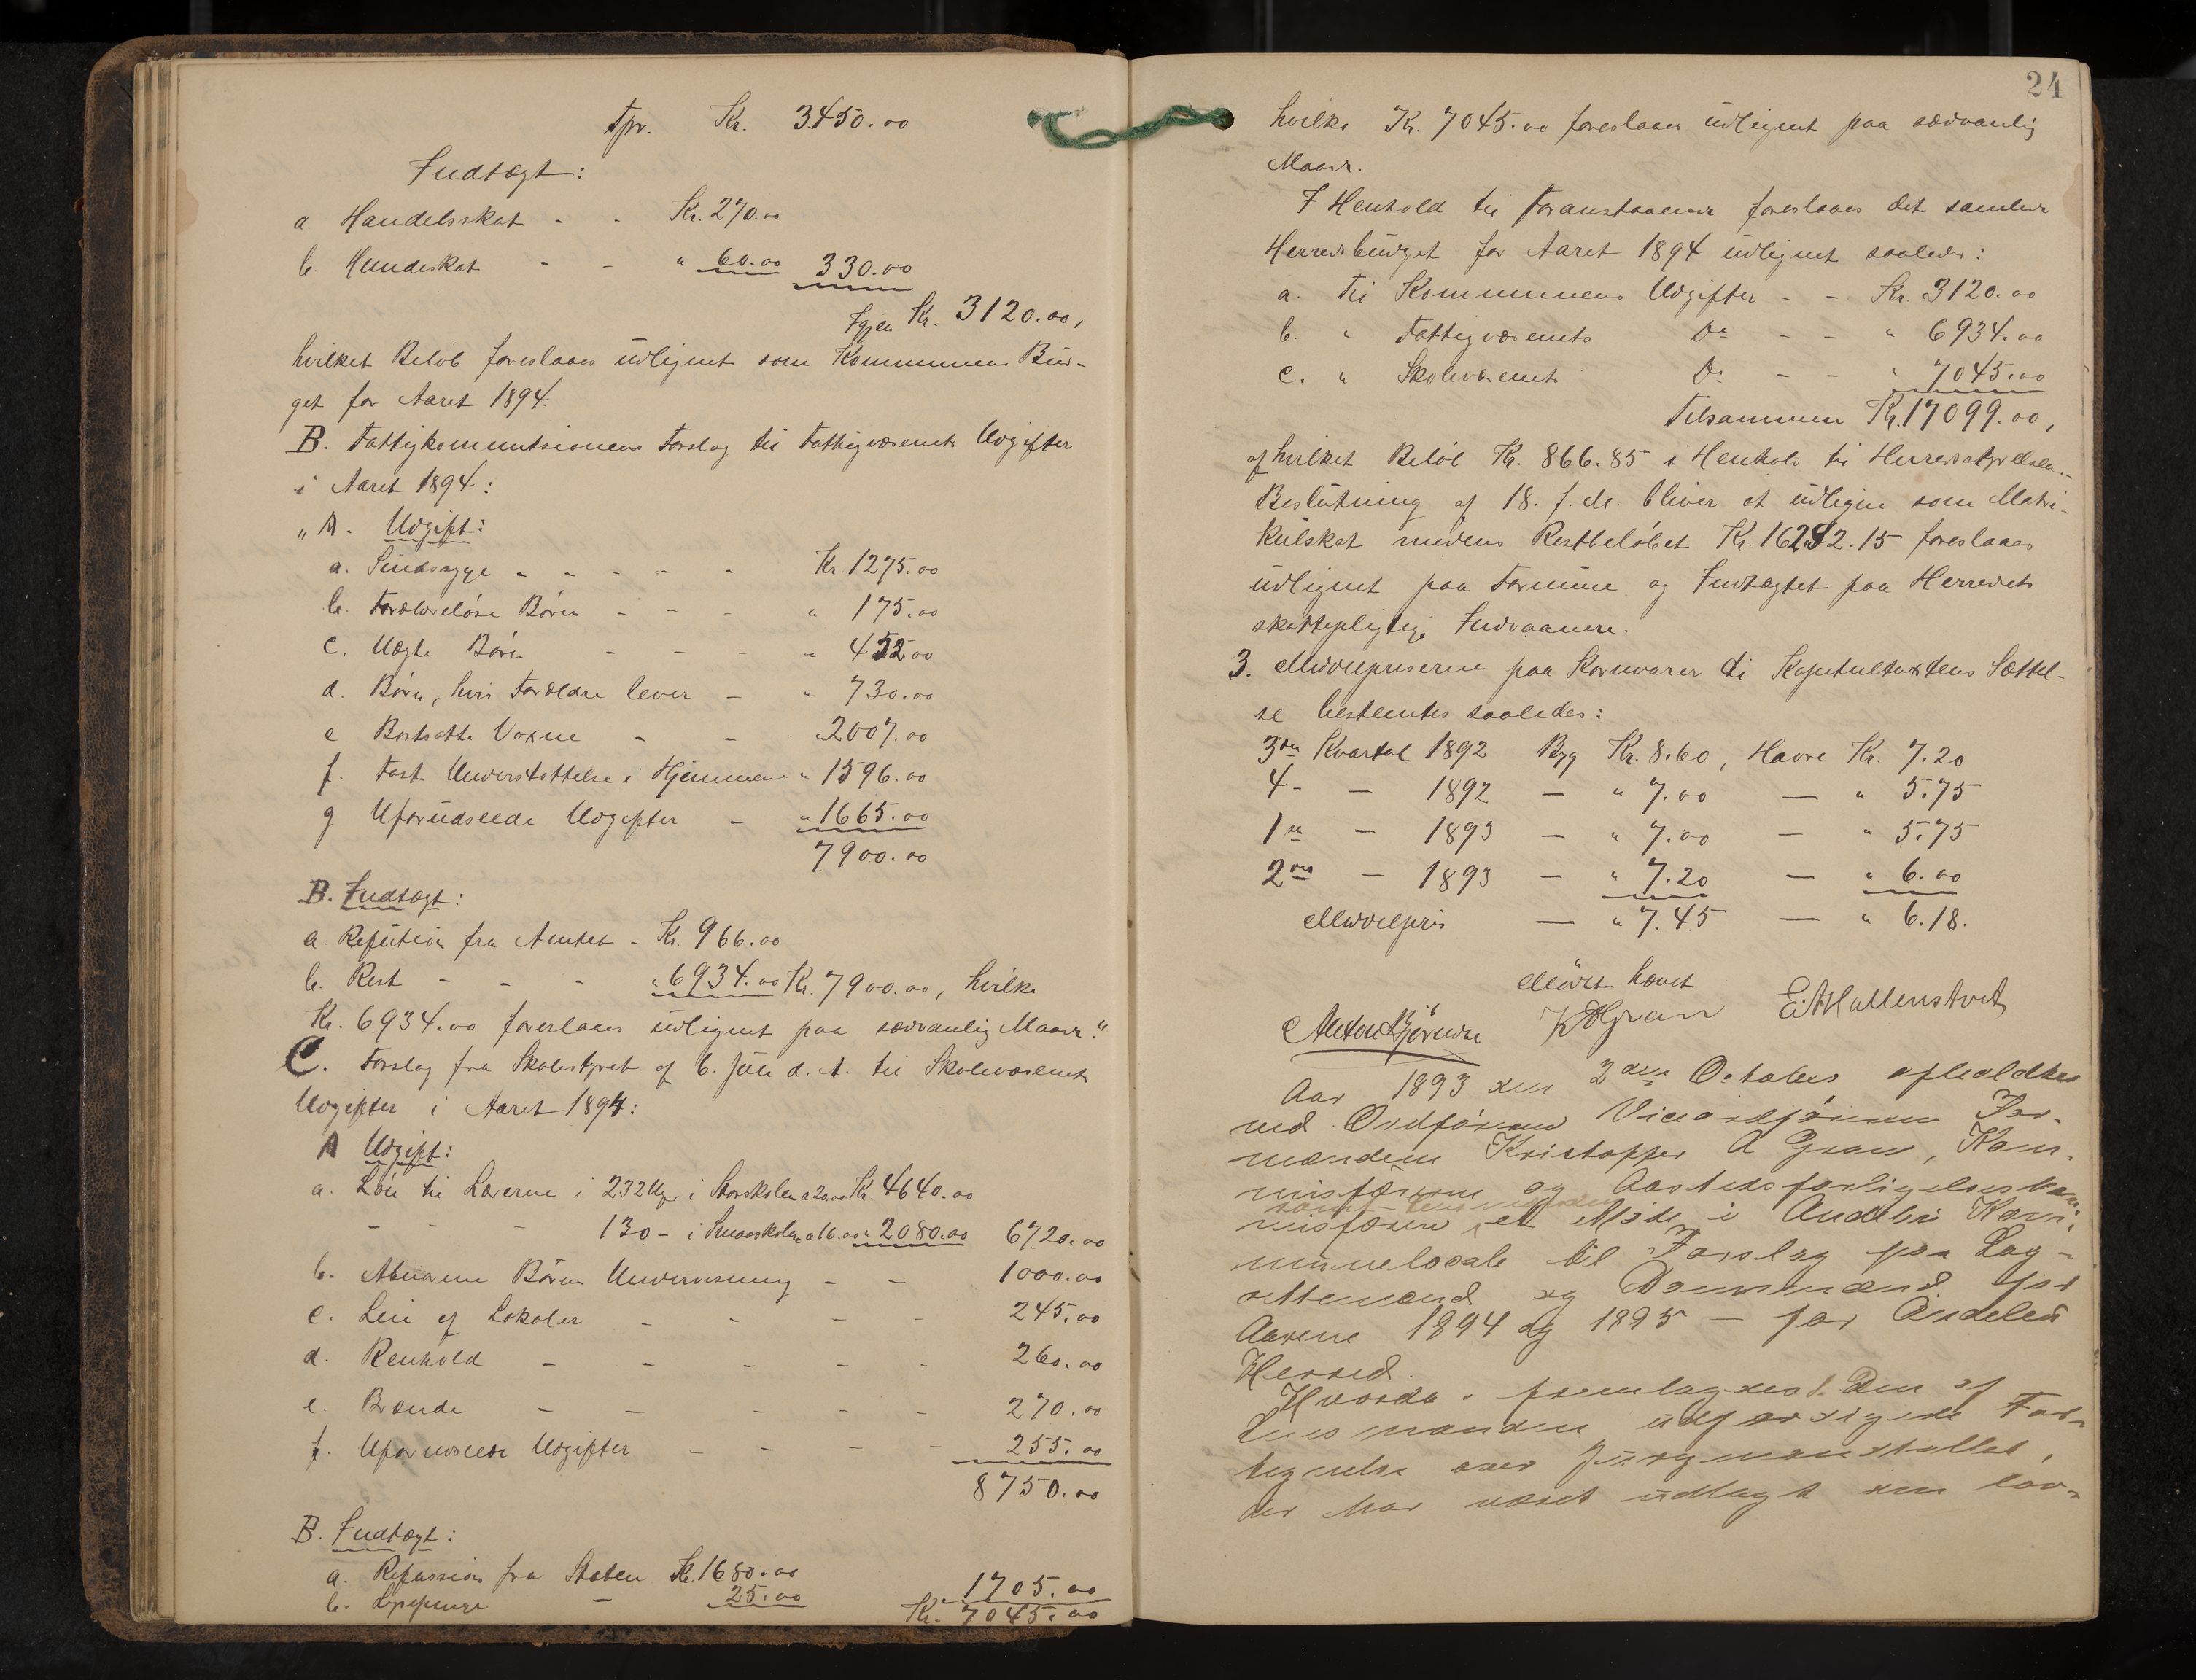 Tpr. Kr. 3450.00
Indtægt:
a. Handelsskat - - Kr. 270.00
b. Hundeskat - - " 60.00 330.00
Igjen Kr. 3120.00,
hvilket Beløb foreslaaes udlignet som Kommunens Bud-
get for Aaret 1894.
B. Fattigkommissionens Forslag til Fattigvæsenets Udgifter
i Aaret 1894:
"A. Udgift:
a. Sindssyge - - - - - Kr. 1275.00
b. Forældreløse Børn - - - " 175.00
c. Uægte Børn - - - " 452.00
d. Børn, hvis Forældre lever - " 730.00
e Bortsatte Voxne - - " 2007.00
f. Fast Understøttelse i Hjemmene " 1596.00
g Uforudseede Udgifter - " 1665.00
7900.00
B. Indtægt:
a. Refusion fra Amtet - Kr. 966.00
b. Rest - - - " 6934.00 Kr. 7900.00, hvilke
Kr. 6934.00 foreslaaes udlignet paa sædvanlig Maade."
C. Forslag fra Skolestyret af 6. Juli d. A. til Skolevæsenets
Udgifter i Aaret 1894:
A Udgift:
a. Løn til Lærerne i 232 Uger i Storskolen a 20.00 Kr. 4640.00
- - - 130 - i Smaaskolen a 16.00 " 2080.00 6720.00
b. Abnorme Børns Undervisning - - 1000.00
c. Leie af Lokaler - - - - 245.00
d. Renhold - - - - - 260.00
e. Brænde - - - - - 270.00
f. Uforudseede Udgifter - - - - 255.00
8750.00
B. Indtægt:
a. Refusion fra Staten Kr. 1680.00
b. - 25.00 1705.00
Kr. 7045.00
24
hvilke Kr. 7045.00 foreslaaes udlignet paa sædvanlig
Maade.
I Henhold til Foranstaaende foreslaaes det samlede
Herredsbudget for Aaret 1894 udlignet saaledes:
a. Til Kommunens Udgifter - - Kr. 3120.00
b. " Fattigvæsenets Do - - " 6934.00
c. " Skolevæsenets Do - - " 7045.00
Tilsammen Kr. 17099.00,
af hvilket Beløb Kr. 866.85 i Henhold til Herredsstyrelsens
Beslutning af 18. f. M. bliver at udligne som Matri-
kulskat medens Restbeløbet Kr. 16232.15 foreslaaes
udlignet paa Formue og Indtægt paa Herredets
skattepligtige Indvaanere.
3. Middelpriserne paa Kornvarer til Kapitultaxtens Sættel-
se bestemtes saaledes:
3die Kvartal 1892 Byg Kr. 8.60, Havre Kr. 7.20
4- - 1892 - " 7.00 - " 5.75
1ste - 1893 - " 7.00 - " 5.75
2det - 1893 - " 7.20 - " 6.00
Middelpris - " 7.45 - " 6.18.
Mødet hævet
K A Gran
Aar 1893 den 2den October afholdtes
ved Ordføreren Viceordføreren For-
mændene Kristoffer A Gran, Kom-
misærerne og Aastedsforligelseskom-
misærer et Møde i Andebu Kom-
munelocale til Forslag paa Lag-
rettemænd og Domsmænd for
Aarene 1894 og 1895 - for Andebu
Herred.
Hvorda: fremlagdes 1. Den af
Lensmanden udfærdigede For-
tegnelse over Jurymandstallet,
der har været udlagt den lov-